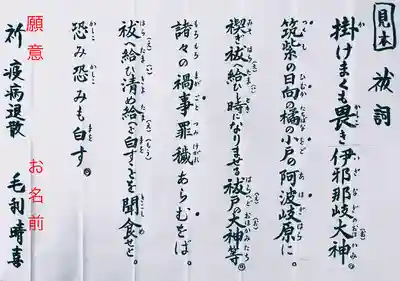 見本 祓詞
掛けまくも畏き伊邪那岐大神。
筑紫の日向の橘の小戸の阿波岐原に。
禊ぎ祓給ひ時になりませる祓戸の大神等。
諸々の禍事罪穢あらむをば。
祓へ給ひ清め給へと白すことを聞食せと。
恐み恐みも白す。
願意 お名前
祈 疫病退散 毛利晴喜